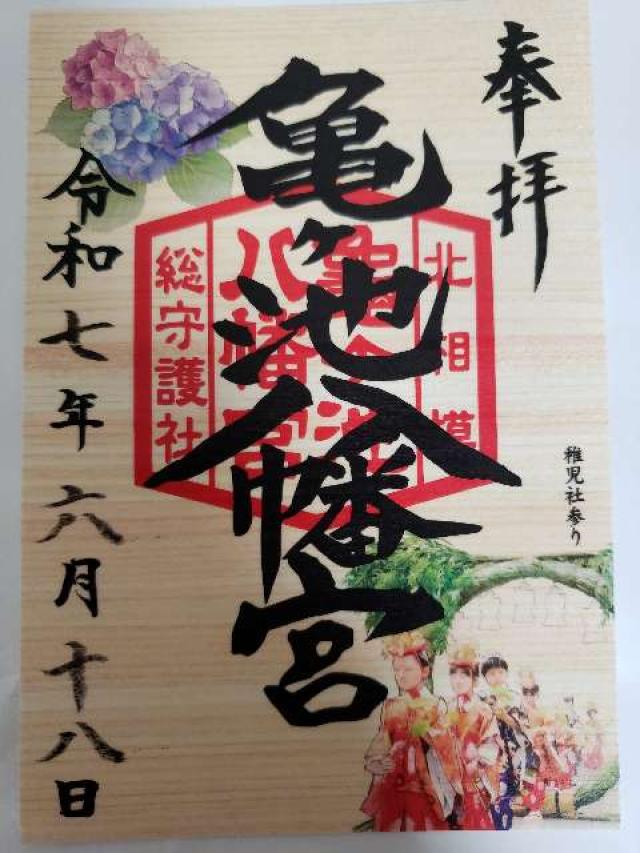 奉拝
亀ヶ池八幡宮
北相模
亀ヶ池
八幡宮
総守護社
稚児社参り
令和七年六月十八日